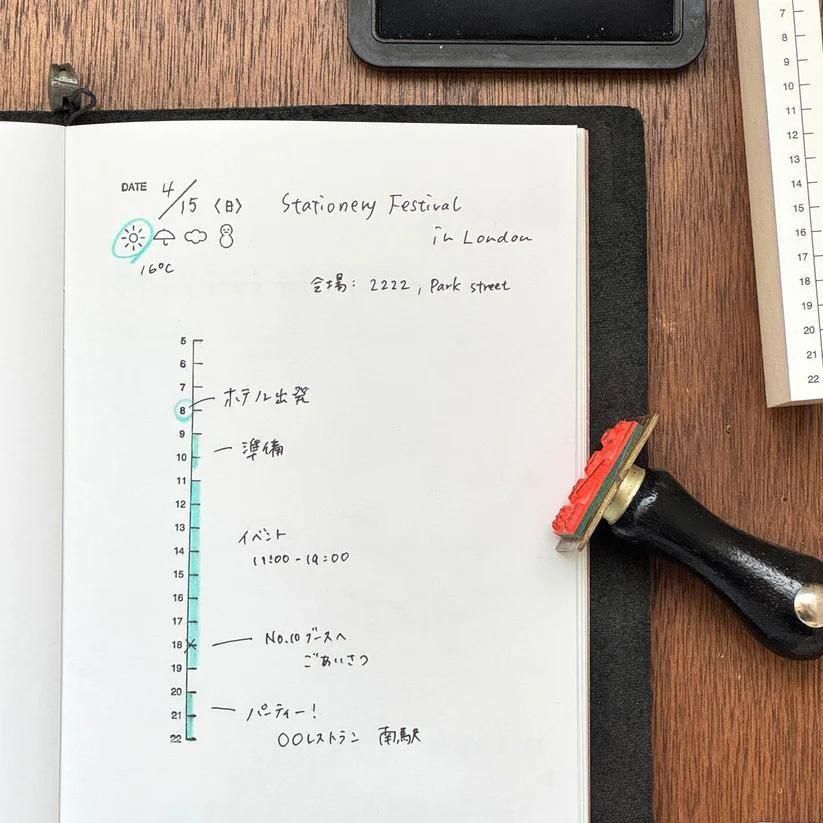 DATE 4/15 〈日〉
Stationery Festival
in London
16°C
会場: 2222, Park street
5
6
7
8 ホテル出発
9
10 準備
11
12
13
イベント
11:00-19:00
14
15
16
17
18 No.10 ブースへ
ごあいさつ
19
20
21 パーティー!
〇〇レストラン 南駅
22
7
8
9
10
11
12
13
14
15
16
17
18
19
20
21
22